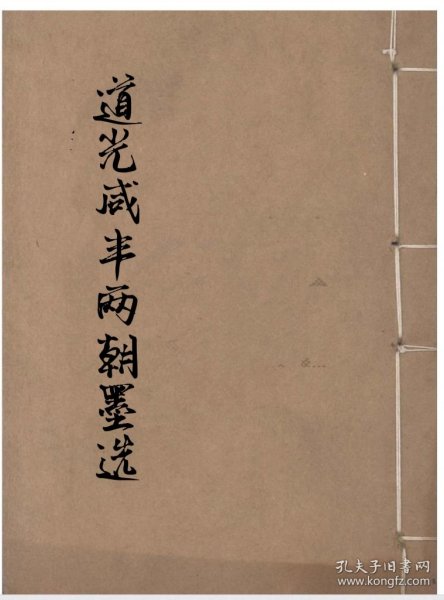 道光咸丰两朝墨选
孔夫子旧书网
www.kongfz.com